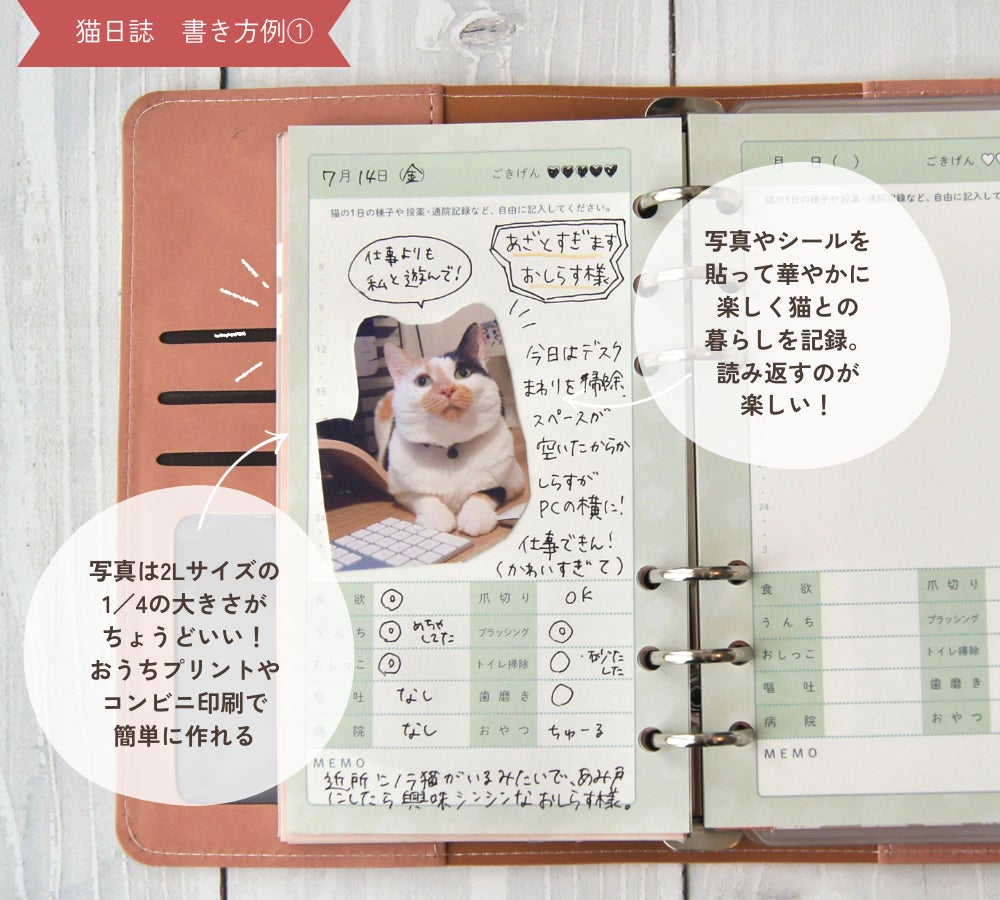 猫日誌　書き方例①
7月14日（金）
ごきげん
猫の1日の様子や投薬・通院記録など、自由に記入してください。
仕事よりも
私と遊んで！
あざとすぎます
おしらす様
今日はデスク
まわりを掃除。
スペースが
空いたからか
しらすが
PCの横に！
仕事できん！
（かわいすぎて）
6
9
12
15
24
食欲 ◎
爪切り OK
うんち ◎ めちゃしてた
ブラッシング ◎
おしっこ ◎
トイレ掃除 ○ ・砂うたした
嘔吐 なし
歯磨き ○
病院 なし
おやつ ちゅーる
MEMO
近所にノラ猫がいるみたいで、あみ戸
にしたら興味シンシンなおしらす様。
月　日（　）
ごきげん
猫の1日の様子や投薬・通院記録など、自由に記入して
24
3
食欲
爪切り
うんち
ブラッシング
おしっこ
トイレ掃除
嘔吐
歯磨き
病院
おやつ
MEMO
写真やシールを
貼って華やかに
楽しく猫との
暮らしを記録。
読み返すのが
楽しい！
写真は2Lサイズの
1／4の大きさが
ちょうどいい！
おうちプリントや
コンビニ印刷で
簡単に作れる